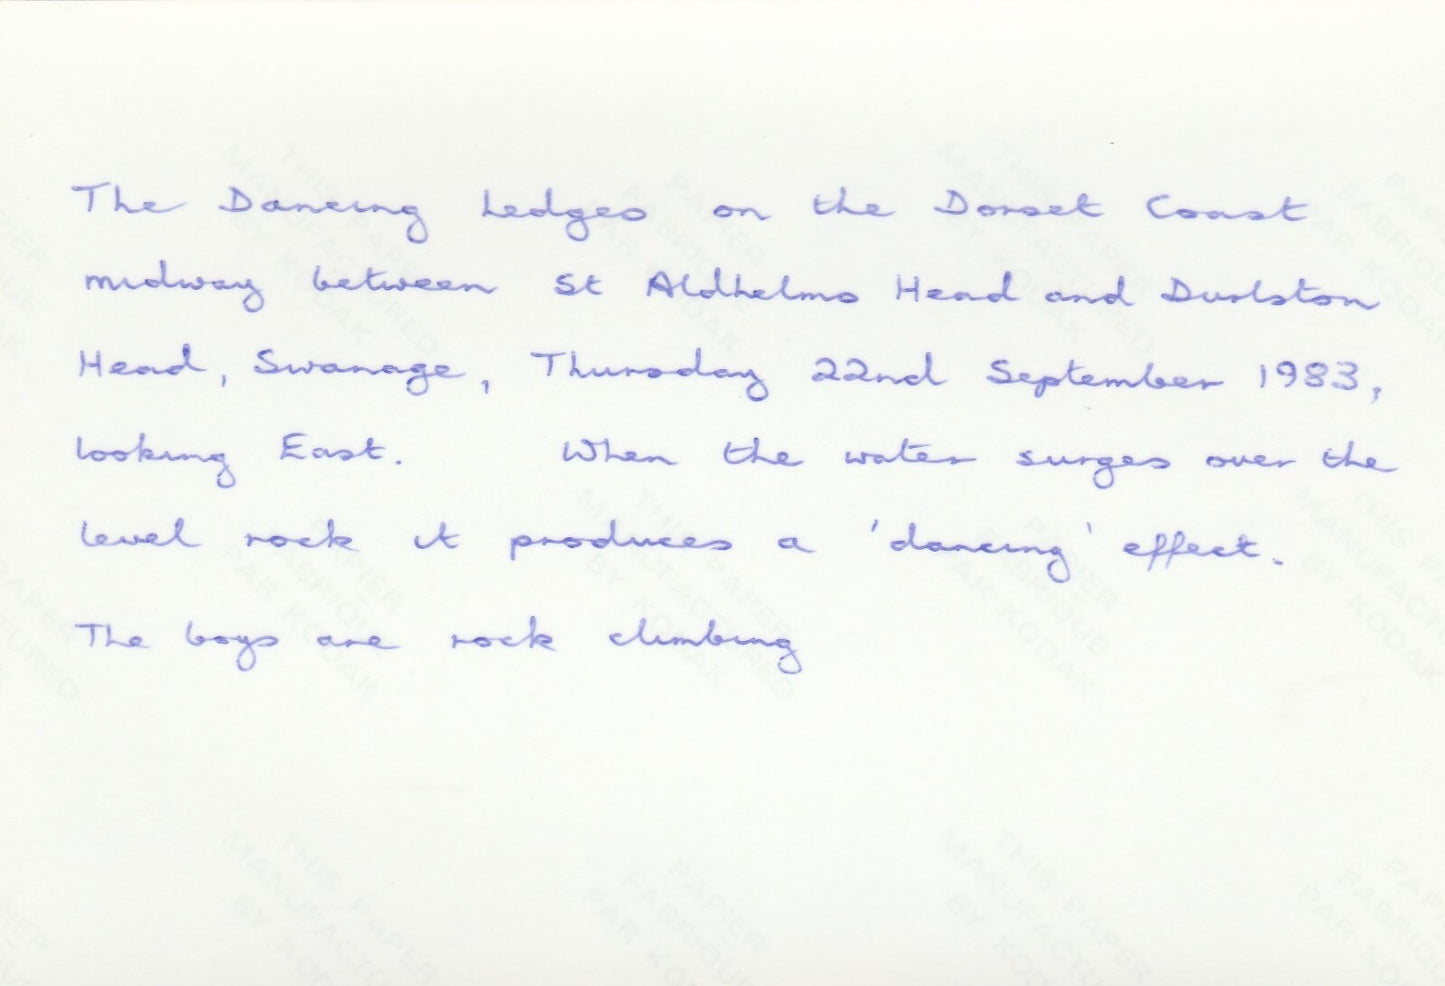 The Dancing Ledges on the Dorset Coast
midway between St Aldhelms Head and Durlston
Head, Swanage, Thursday 22nd September 1983,
looking East. When the water surges over the
level rock it produces a 'dancing' effect.
The boys are rock climbing
THIS PAPER
MANUFACTURED
BY KODAK
PAPIER
FABRIQUE
PAR KODAK